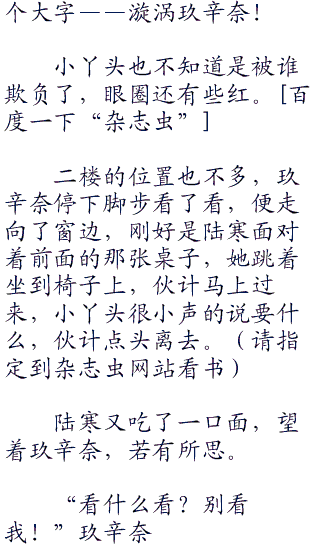 个大字——漩涡玖辛奈！
小丫头也不知道是被谁
欺负了，眼圈还有些红。[百
度一下“杂志虫”]
二楼的位置也不多，玖
辛奈停下脚步看了看，便走
向了窗边，刚好是陆寒面对
着前面的那张桌子，她跳着
坐到椅子上，伙计马上过
来，小丫头很小声的说要什
么，伙计点头离去。（请指
定到杂志虫网站看书）
陆寒又吃了一口面，望
着玖辛奈，若有所思。
“看什么看？别看
我！”玖辛奈